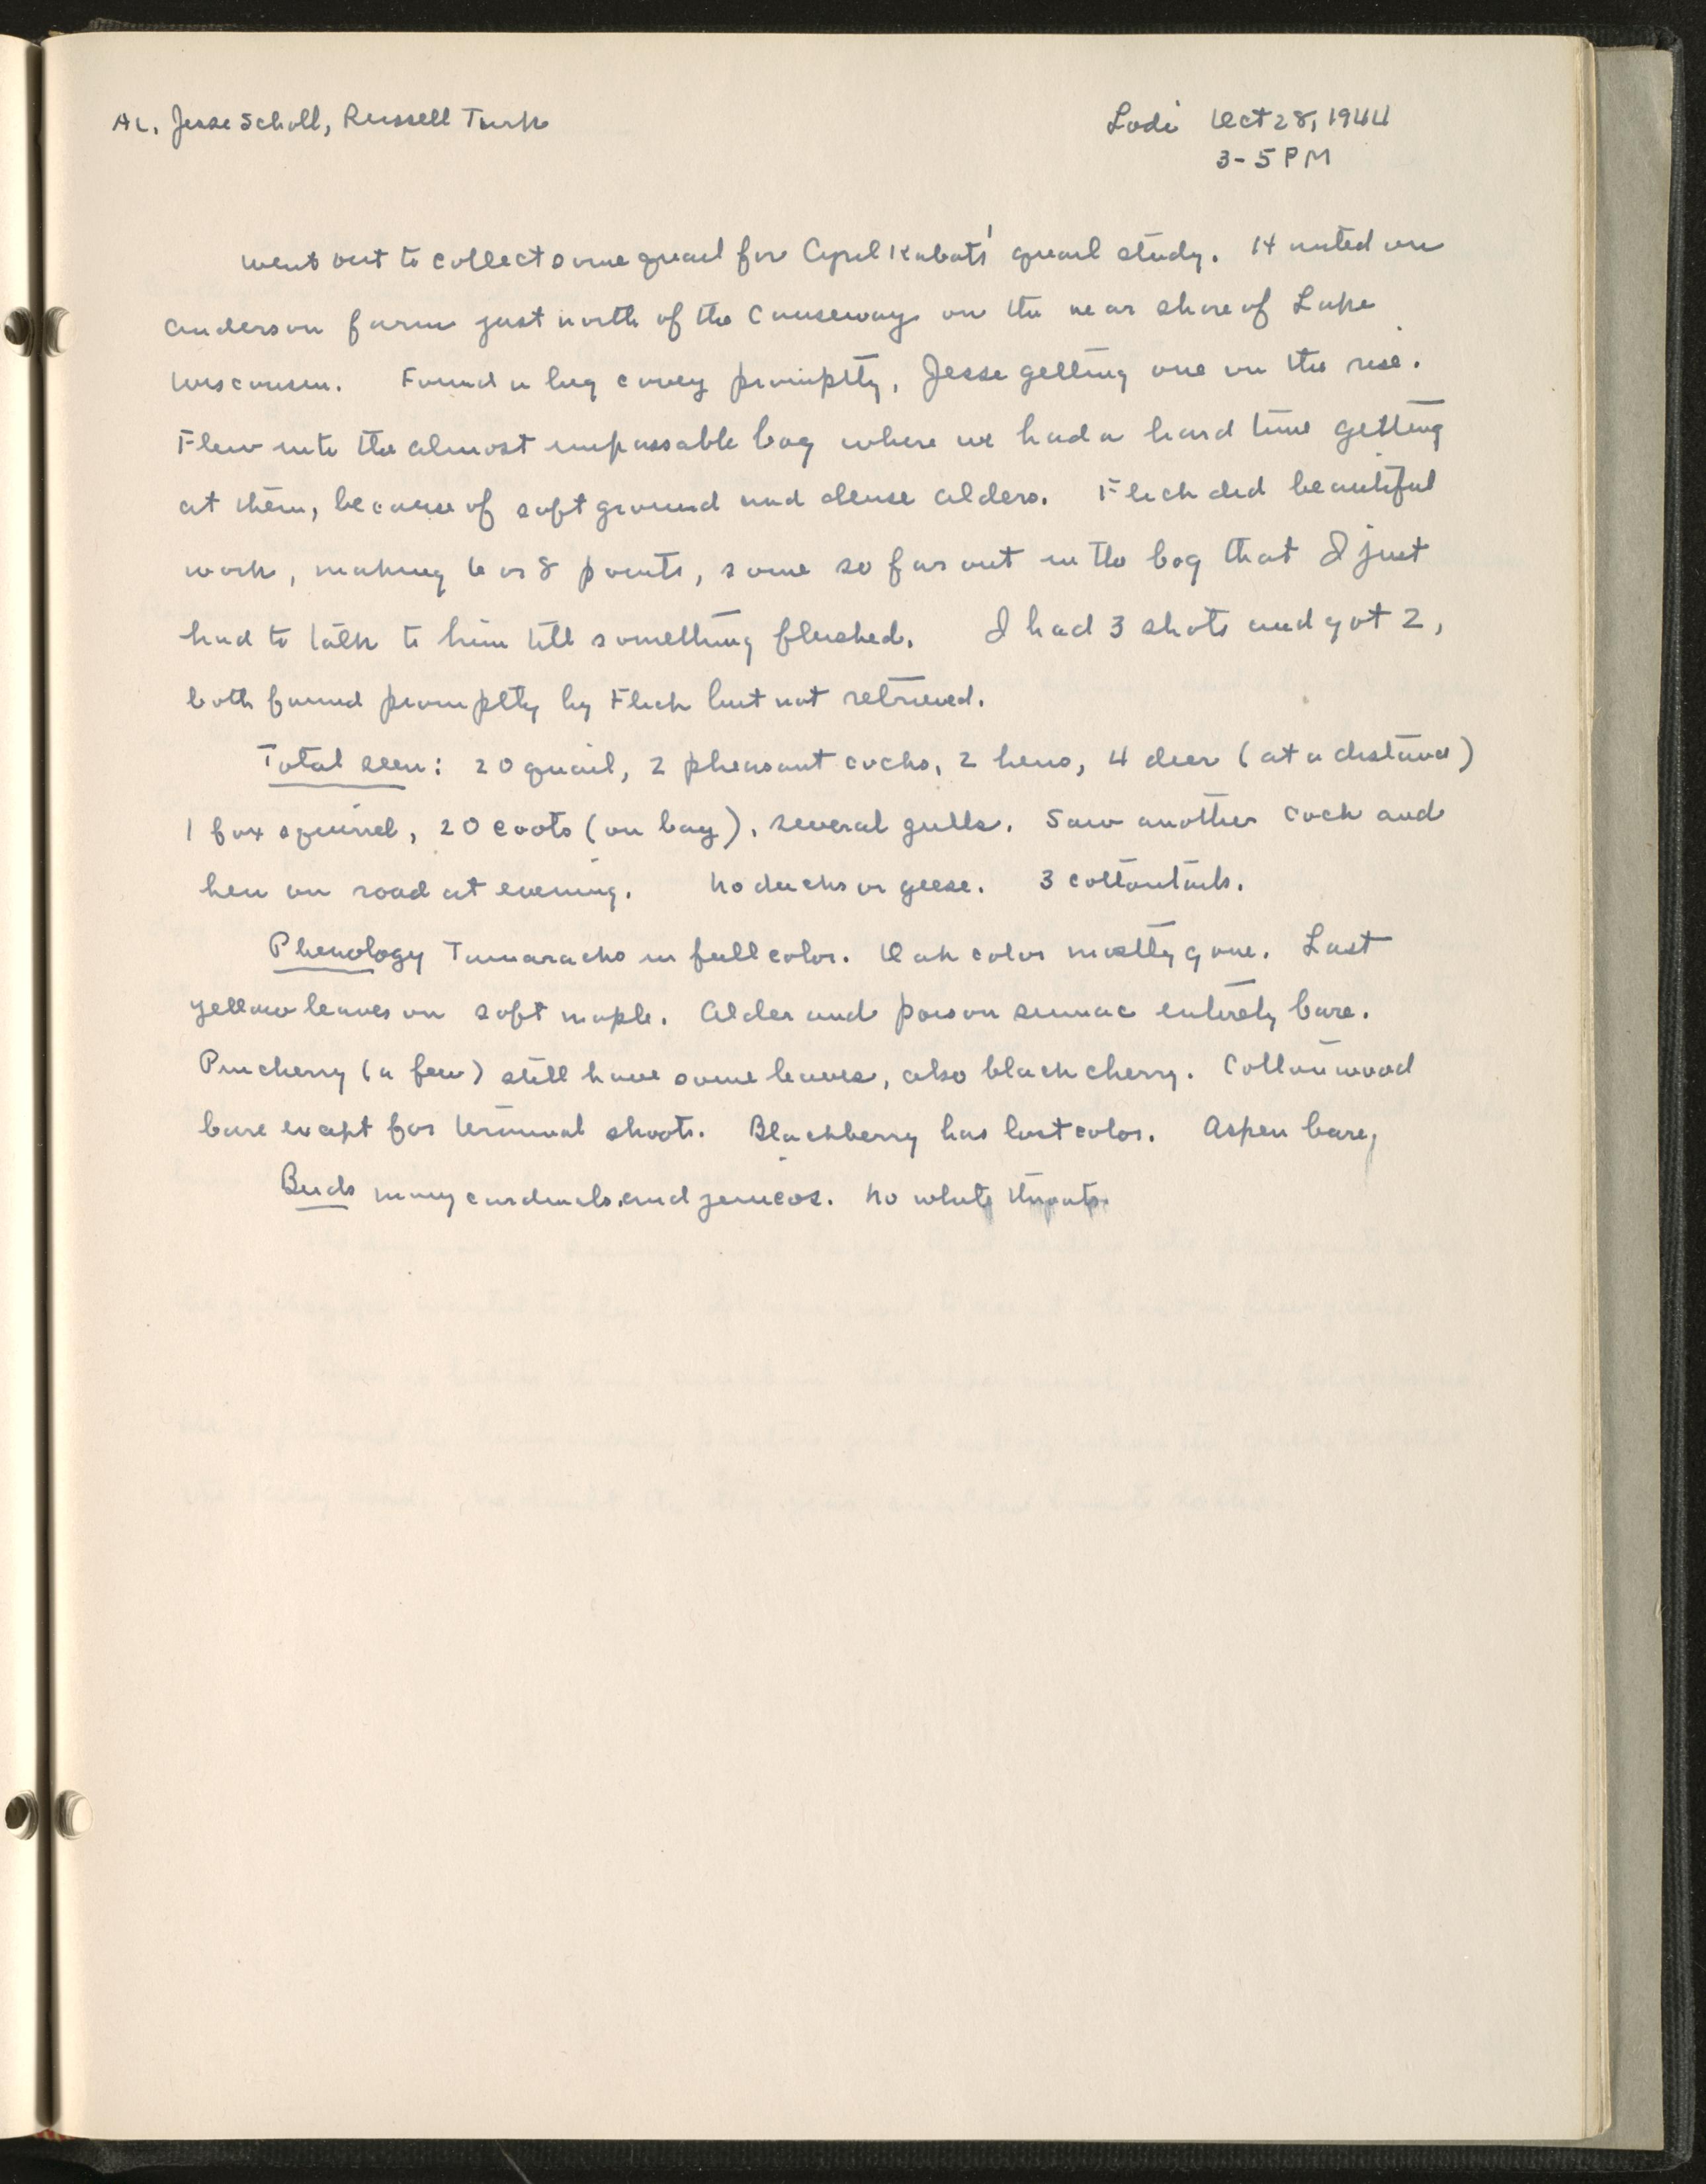 AL, Jesse Scholl, Russell Turk
Lodi Oct 28, 1944
3-5 PM
Went out to collect some quail for Cyril Kabats' quail study. Hunted on
Anderson farm just north of the Causeway on the near shore of Lake
Wisconsin. Found a big covey promptly, Jesse getting one on the rise.
Flew into the almost impassable bog where we had a hard time getting
at them, because of soft ground and dense alders. Flick did beautiful
work, making 6 or 8 points, some so far out in the bog that I just
had to talk to him till something flushed. I had 3 shots and got 2,
both found promptly by Flick but not retrieved.
Total seen: 20 quail, 2 pheasant cocks, 2 hens, 4 deer (at a distance)
1 fox squirrel, 20 coots (on bay), several gulls. Saw another cock and
hen on road at evening. No ducks or geese. 3 cottontails.
Phenology Tamaracks in full color. Oak color mostly gone. Last
yellow leaves on soft maple. Alder and poison sumac entirely bare.
Pincherry (a few) still have some leaves, also black cherry. Cottonwood
bare except for terminal shoots. Blackberry has lost color. Aspen bare,
Birds many cardinals and juncos. No white throats.